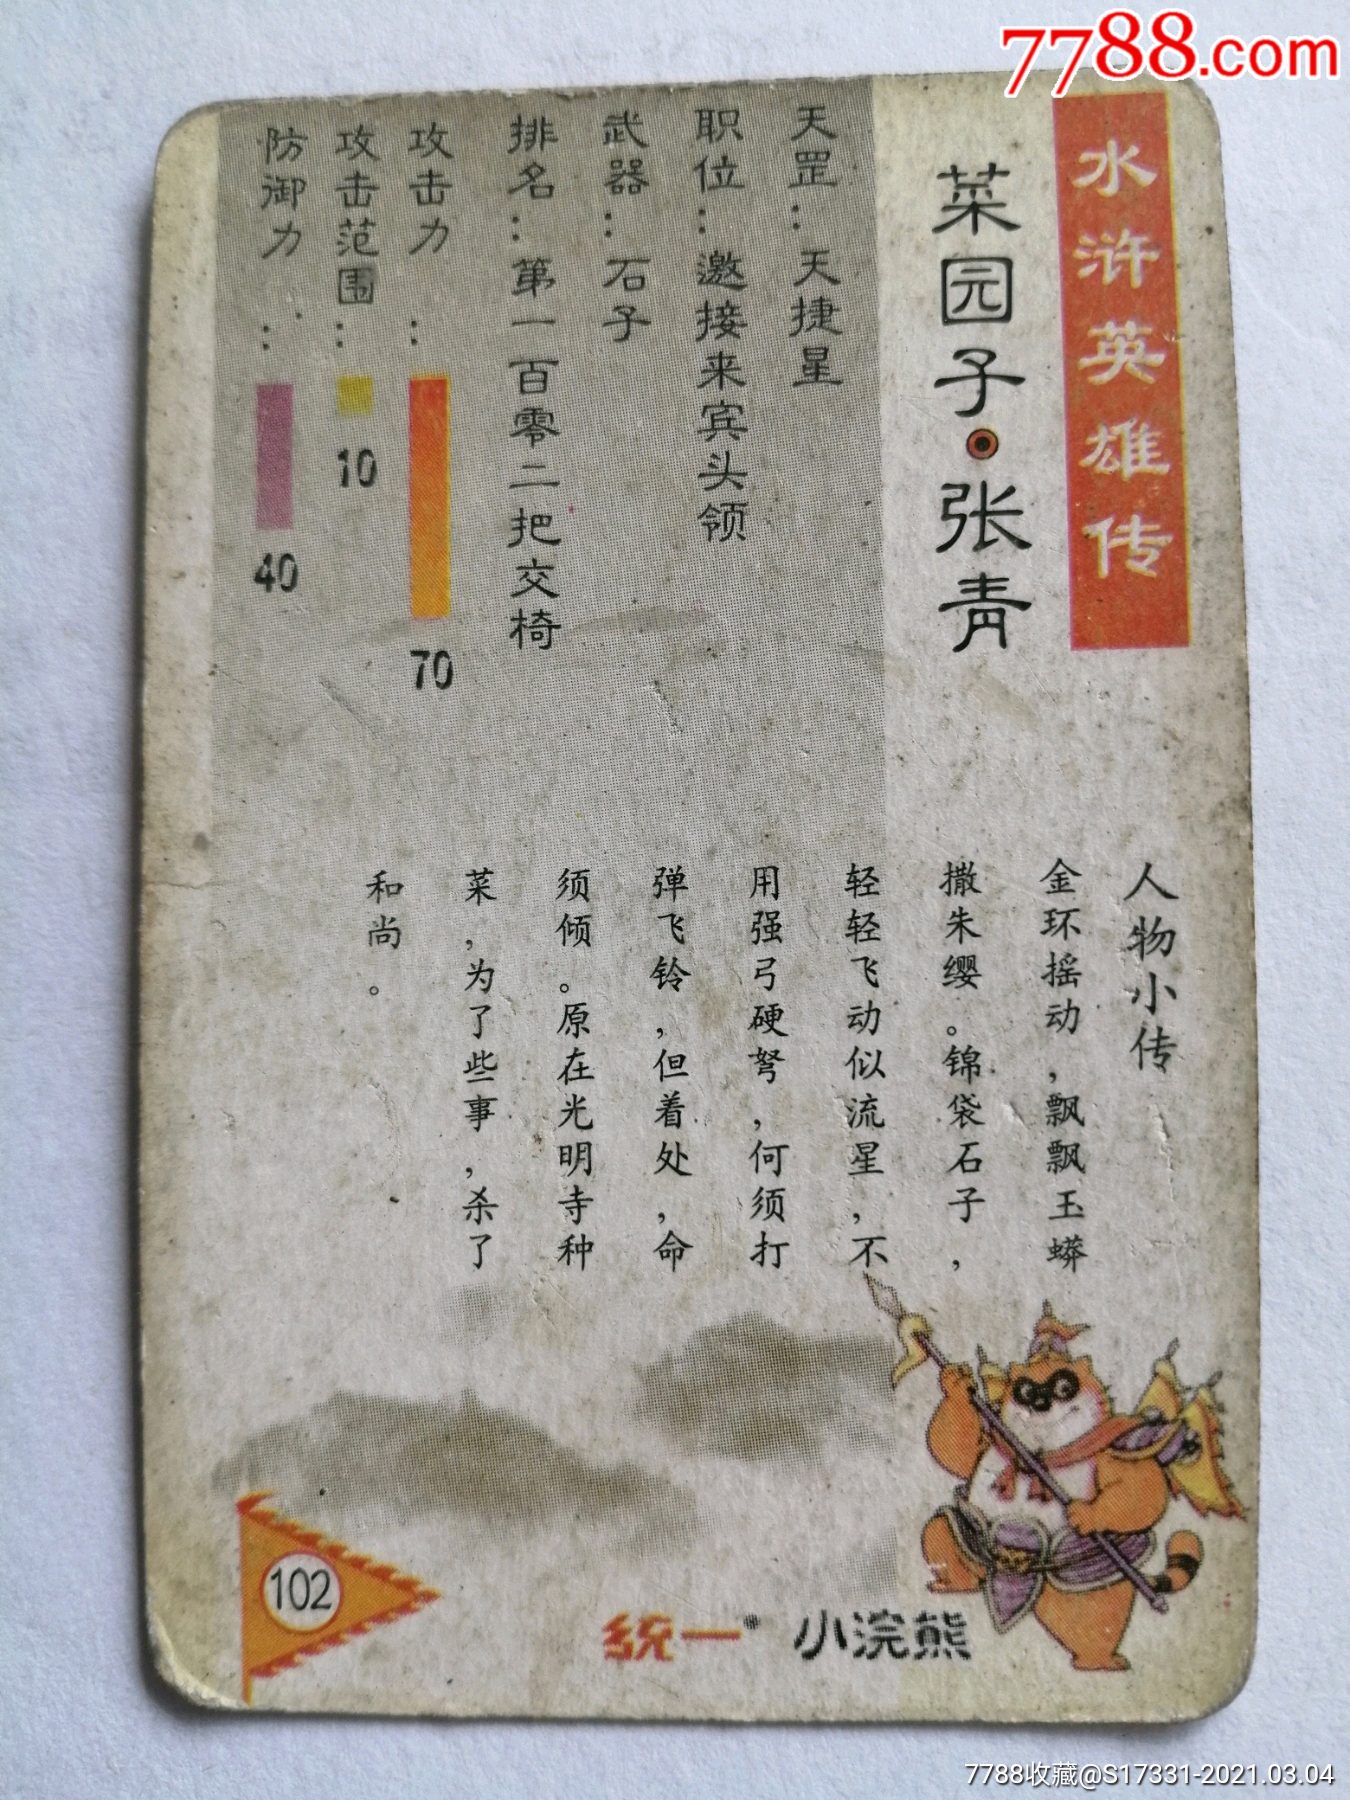 7788.com
水浒英雄传
菜园子·张青
天罡:天捷星
职位:邀接来宾头领
武器:石子
排名:第一百零二把交椅
攻击力:70
攻击范围:10
防御力:40
人物小传
金环摇动,飘飘玉蟒
撒朱缨。锦袋石子,
轻轻飞动似流星,不
用强弓硬弩,何须打
弹飞铃,但着处,命
须倾。原在光明寺种
菜,为了些事,杀了
和尚。
102
統一 小浣熊
7788收藏@S17331-2021.03.04